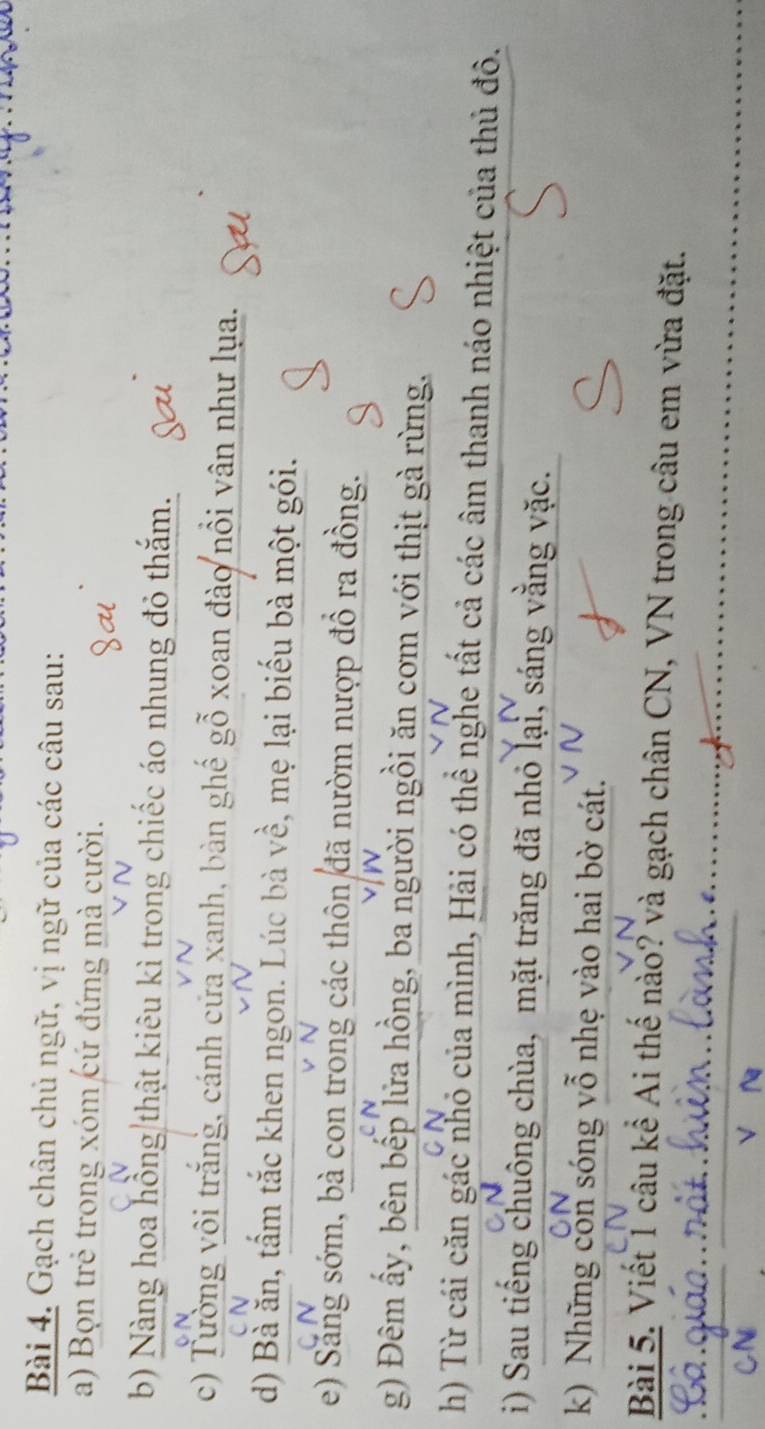 Bài 4. Gạch chân chủ ngữ, vị ngữ của các câu sau:
a) Bọn trẻ trong xóm/cứ đứng mà cười. sai
CN VN
b) Nàng hoa hồng/thật kiêu kì trong chiếc áo nhung đỏ thắm. sai
CN VN
c) Tường vôi trắng, cánh cửa xanh, bàn ghế gỗ xoan đào/nổi vân như lụa. sai
CN VN
d) Bà ăn, tấm tắc khen ngon. Lúc bà về, mẹ lại biếu bà một gói. S
CN VN
e) Sáng sớm, bà con trong các thôn/đã nườm nượp đổ ra đồng. S
CN V/N
g) Đêm ấy, bên bếp lửa hồng, ba người ngồi ăn cơm với thịt gà rừng. S
CN VN
h) Từ cái căn gác nhỏ của mình, Hải có thể nghe tất cả các âm thanh náo nhiệt của thủ đô.
CN VN S
i) Sau tiếng chuông chùa, mặt trăng đã nhỏ lại, sáng vằng vặc.
CN VN S
k) Những con sóng vỗ nhẹ vào hai bờ cát.
CN VN
Bài 5. Viết 1 câu kể Ai thế nào? và gạch chân CN, VN trong câu em vừa đặt.
Cô giáo rất hiền lành.
CN VN